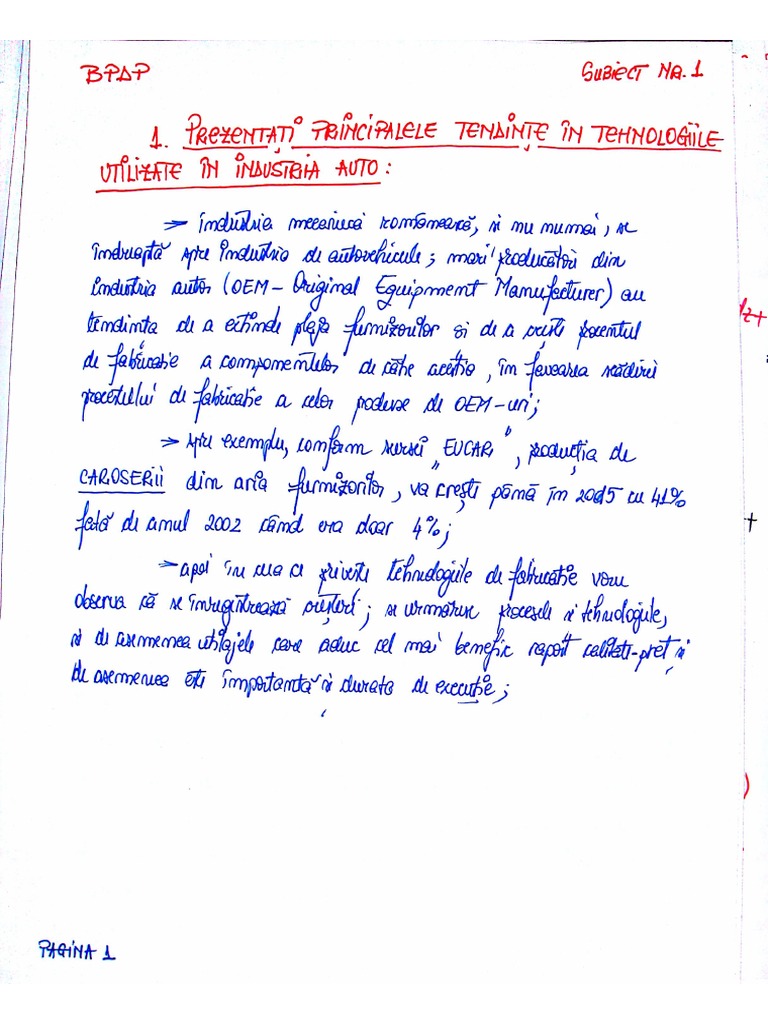 BPAP
SUBIECT NR. 1
1. PREZENTAȚI PRINCIPALELE TENDINȚE ÎN TEHNOLOGIILE
UTILIZATE ÎN INDUSTRIA AUTO:
→ industria mecanică românească, și nu numai, se
îndreaptă spre industria de autovehicule; marii producători din
industria autor (OEM - Original Equipment Manufacturer) au
tendința de a extinde plaja furnizorilor și de a crește procentul
de fabricație a componentelor de către aceștia, în favoarea scăderii
procesului de fabricație a celor produse de OEM-uri;
→ spre exemplu, conform sursei "EUCAR", producția de
CAROSERII din aria furnizorilor, va crește până în 2015 cu 41%
față de anul 2002 când era doar 4%;
→ apoi în ceea ce privește tehnologiile de fabricație vom
observa că se înregistrează creșteri; se urmăresc procesele și tehnologiile,
și de asemenea utilajele care aduc cel mai benefic raport calitate-preț și
de asemenea este importantă și durata de execuție;
PAGINA 1